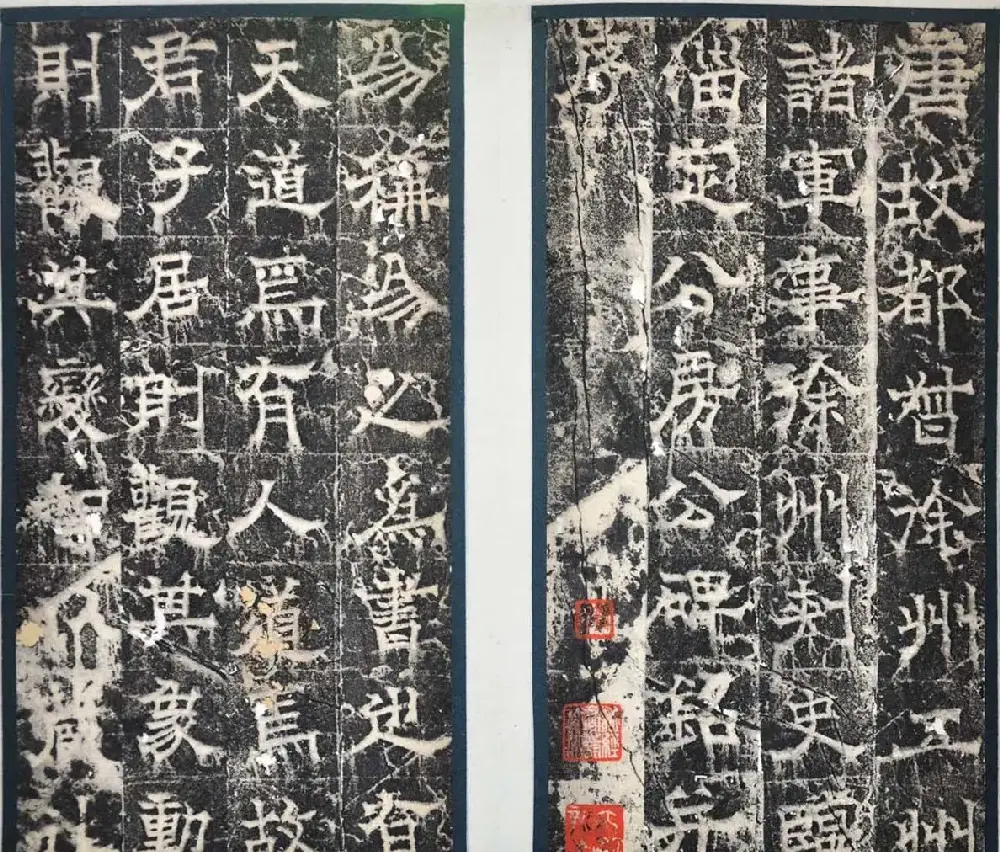 唐故都督徐州五州
諸軍事徐州刾史臨
淄定公房公碑銘并
序
易稱易之爲書也有
天道焉有人道焉故
君子居則觀其象動
則觀其變